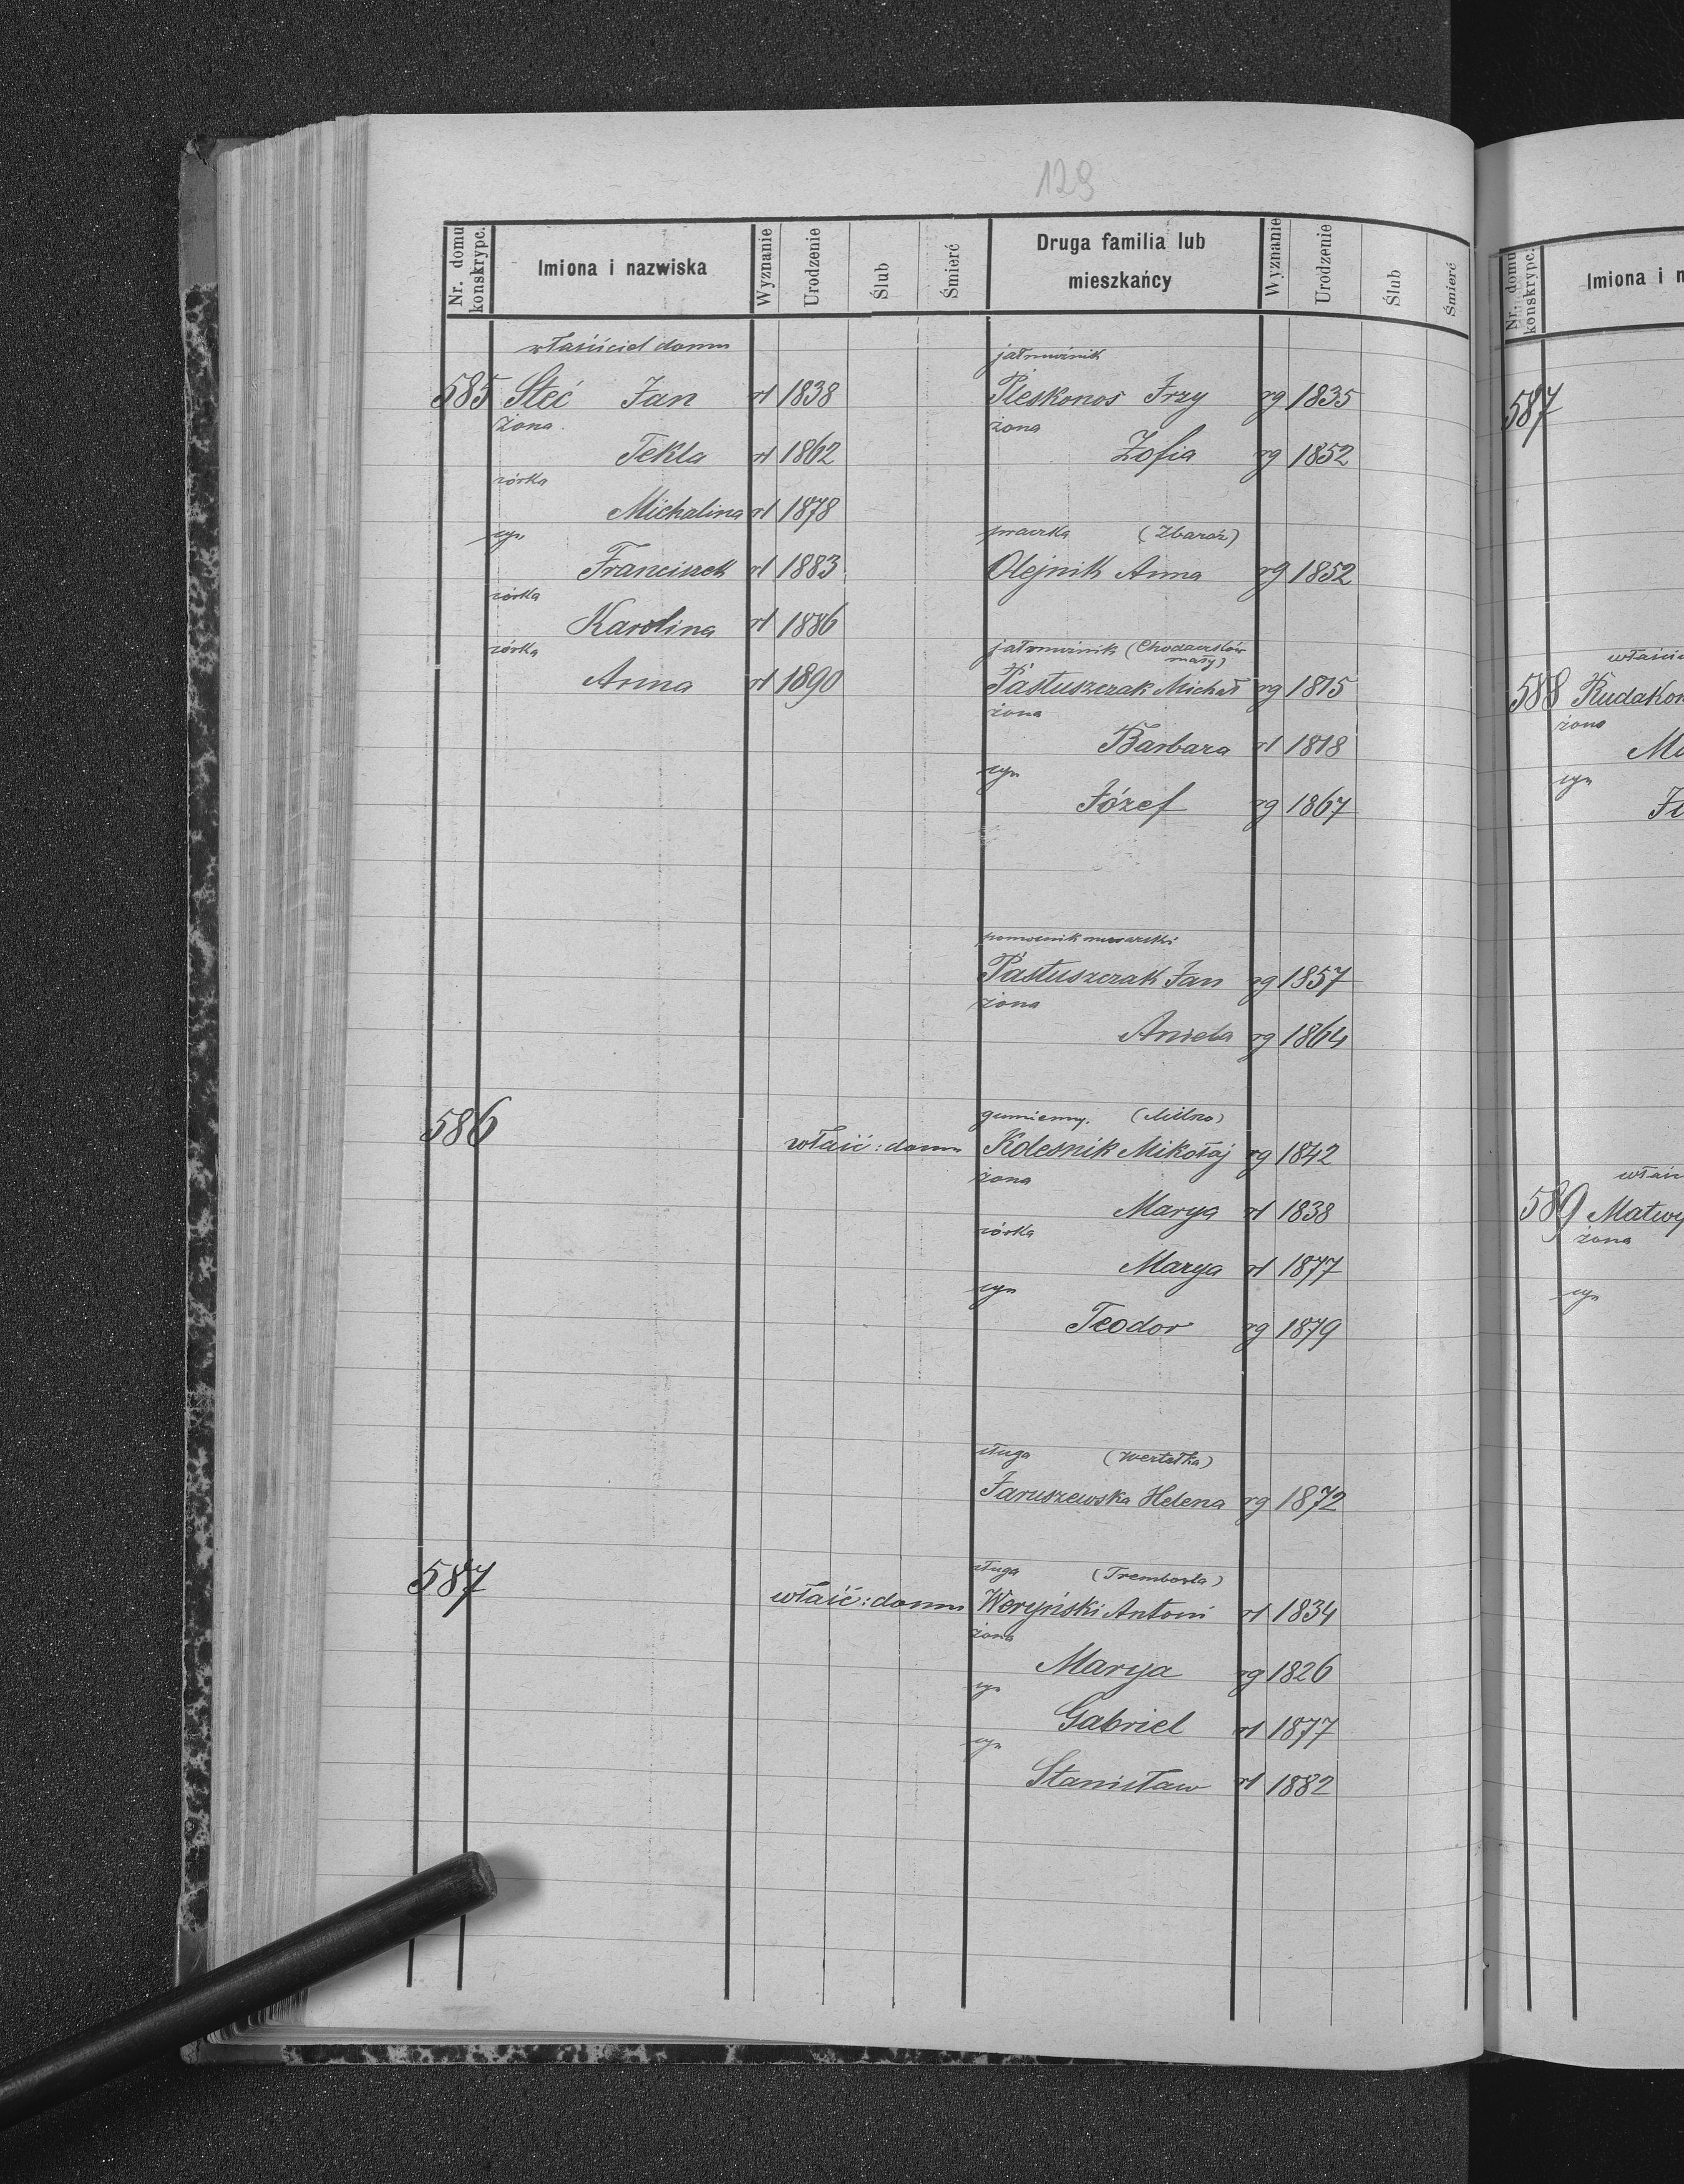 129
Nr. domu konskrypc.
Imiona i nazwiska
Wyznanie
Urodzenie
Ślub
Śmierć
Druga familia lub mieszkańcy
Wyznanie
Urodzenie
Ślub
Śmierć
właściciel domu
585 Steć Jan rł 1838
żona
Tekla rł 1862
córka
Michalina rł 1878
syn
Franciszek rł 1883
córka
Karolina rł 1886
córka
Anna rł 1890
jałmużnik
Pleskonos Jrzy rg 1835
żona
Zofia rg 1852
praczka (Zbaraż)
Olejnik Anna rg 1852
jałmużnik (Chodaczków mały)
Pastuszczak Michał rg 1815
żona
Barbara rł 1818
syn
Józef rg 1867
pomocnik murarski
Pastuszczak Jan rg 1857
żona
Aniela rg 1864
gumienny. (Milno)
586 właść: domu Kolesnik Mikołaj rg 1842
żona
Marya rł 1838
córka
Marya rł 1877
syn
Teodor rg 1879
sługa (Wertełka)
Jaruszewska Helena rg 1872
sługa (Trembowla)
587 właść: domu Woryński Antoni rł 1834
żona
Marya rg 1826
syn
Gabriel rł 1877
syn
Stanisław rł 1882
Nr. domu konskrypc.
Imiona i n
587
właści
588 Rudakon
żona
Ma
syn
właśc
589 Matwy
żona
syn